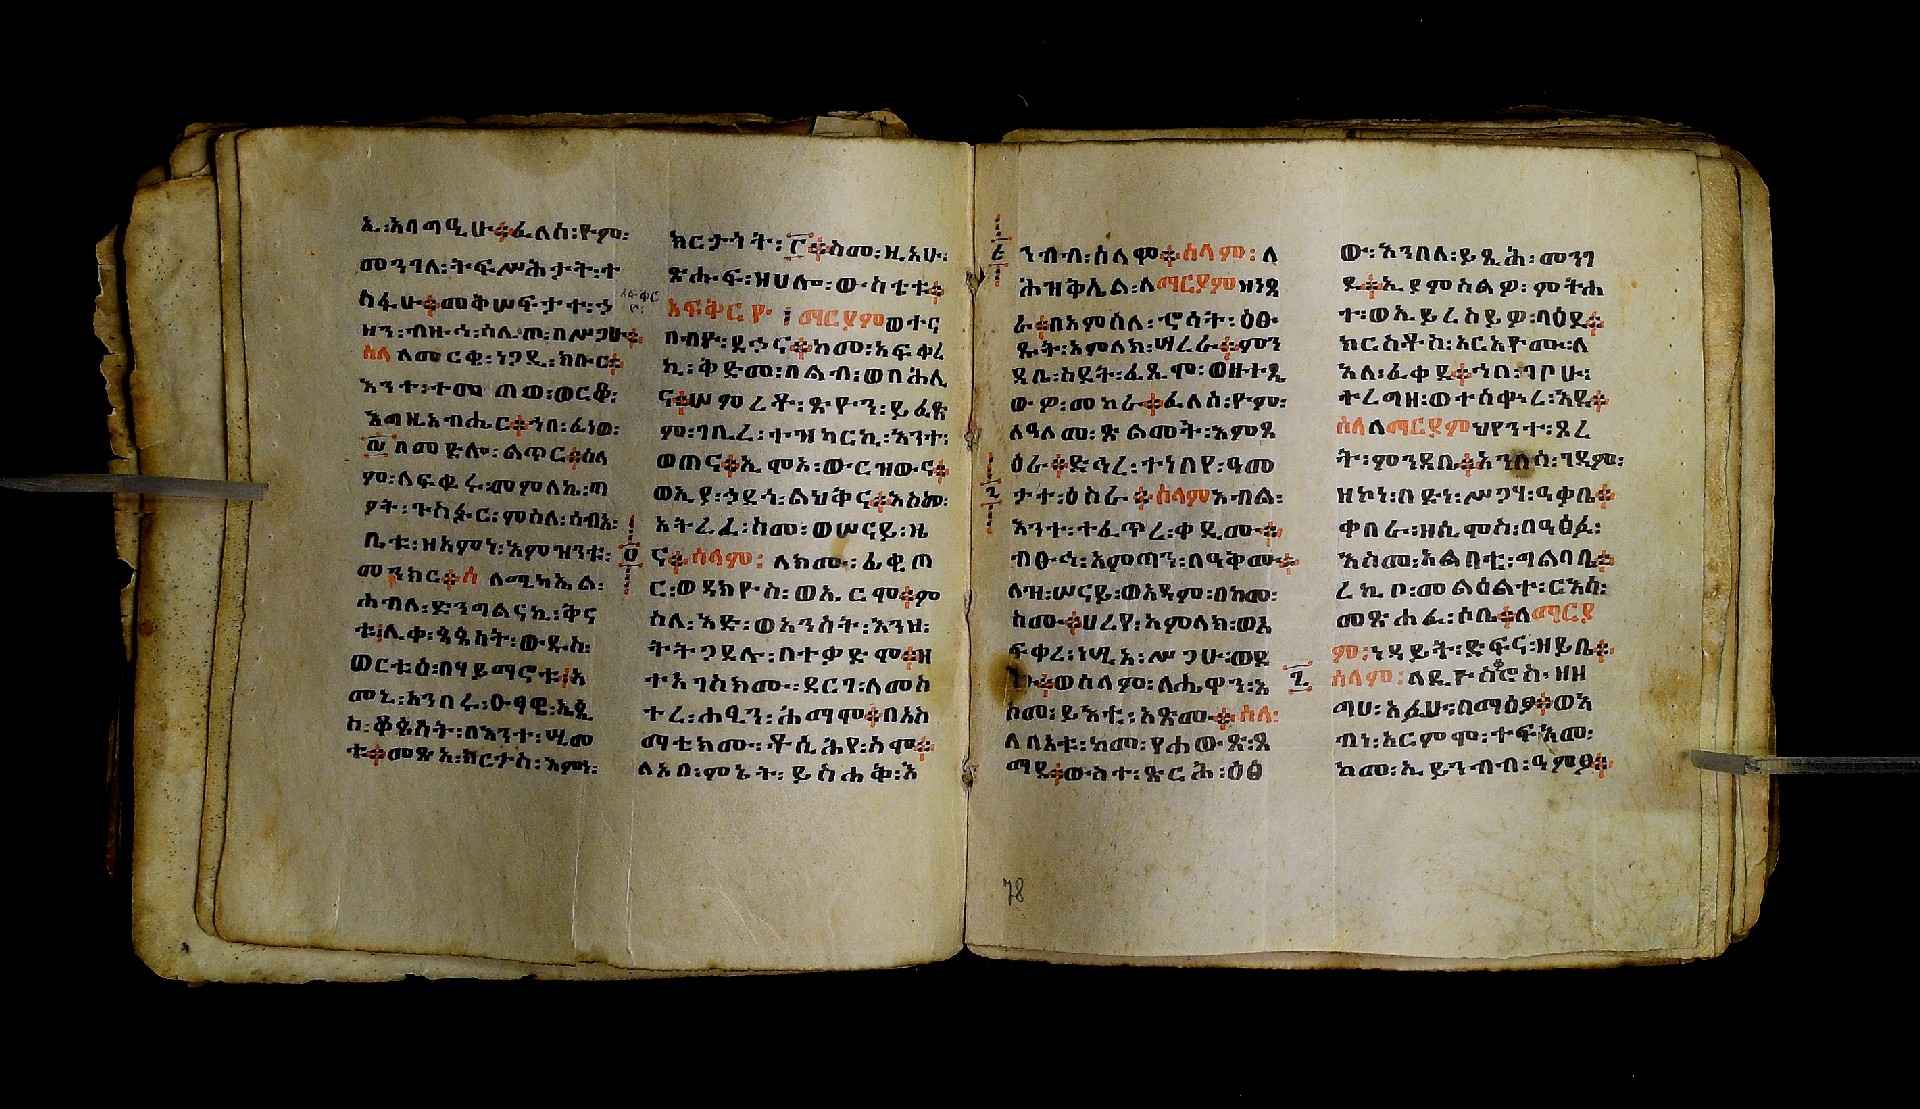 ኢ፡አባግዒሁ፨ፈለስ፡ዮም፡
መንገለ፡ትፍሥሕታት፡ተ
ስፋሁ፨መቅሠፍታተ፡ኃ
ዘን፡ብዙኅ፡ሰሊጦ፡በሥጋሁ፨
ሰላ ለመርቄ፡ነጋዲ፡ክቡር፨
እንተ፡ተመ ጠወ፡ወርቆ፡
እግዚአብሔር፨ኀበ፡ፈነወ፡
በመድሎ፡ልጥር፨ሰላ
ም፡ለፍቁሩ፡መምለኪ፡ጣ
ዖት፡ጉስፋር፡ምስለ፡ሰብአ፡
ቤቱ፡ዘአምነ፡እምዝንቱ፡
መንክር፨ሰ ለሚካኤል፡
ሐብለ፡ድንግልናኪ፡ቅና
ወርቱዕ፡በሃይማኖቱ፡አ
ቱ፨መጽአ፡ክርታስ፡እምነ፡
ክርታኅት፡ ፨ስመ፡ዚአሁ፡
ጽሑፍ፡ዝሀሎ፡ውስቴቱ፨
አፍቅርዮ፡ማርያም ወተና
በብዮ፡ደኃና፨ከመ፡አፍቀረ
ኪ፡ቅድመ፡በልብ፡ወበሕሊ
ና፨ሠምረት፡ጽዮን፡ይፈጽ
ም፡ገቢረ፡ተዝካርኪ፡እንተ፡
ወጠና፨ኢሞአ፡ውርዝውና፨
ወኢያ፡ኃደጎ፡ልህቅና፨እስመ፡
አትረፈ፡ስመ፡ወሠናይ፡ዜ
ና፨ሰላም፡ ለክሙ፡ፊቂጦ
ር፡ወዳክዮስ፡ወኢርሞ፨ም
ስለ፡እድ፡ወአንስት፡እንዘ፡
ትትጋደሉ፡በተቃድሞ፨ዘ
ተአገስክሙ፡ደርገ፡ለመስ
ተረ፡ሐፂን፡ሕማሞ፨በእስ
ማቲክሙ፡ቶሲሕየ፡ስሞ፨
ለአበ፡ምኔት፡ይስሐቅ፡እ
ንብብ፡ሰላሞ፨ሰላም፡ለ
ሕዝቅኤል፡ለማርያም ዘንጸ
ራ፨በአምሰለ፡ኖሳት፡ዕፁ
ጹት፡አምላክ፡ሣረራ፨ምን
ዳቤ፡ስደት፡ፈጺሞ፡ወዘተጺ
ውዎ፡መከራ፨ፈለሰ፡ዮም፡
ለዓለመ፡ጽልመት፡እምጸ
ዕራ፨ድኅረ፡ተነበየ፡ዓመ
ታተ፡ዕስራ፨ሰላም አብል፡
እንተ፡ተፈጥረ፡ቀዲሙ፨
ብፁኅ፡አምጣን፡በዓቅሙ፨
ለዝ፡ሠናይ፡ወአዳም፡በከመ፡
ስሙ፨ሀረየ፡አምላክ፡ወአ
ፍቀረ፡ነሢአ፡ሥጋሁ፡ወደ
ሙ፨ወሰላም፡ለሔዋን፡እ
ስመ፡ይእቲ፡አጽሙ፨ሰለ፡
ለባእቱ፡ከመ፡የሐውጽ፡ጸ
ማደ፨ውስተ፡ጽርሕ፡ዕፅ
ው፡እንበለ፡ይጺሕ፡መንገ
ደ፨ኢያምሰልዎ፡ምትሐ
ተ፡ወኢይረስይዎ፡ባዕደ፨
ክርስቶስ፡አርአዮሙ፡ለ
እለ፡ፈቀደ፨ኀበ፡ገቦሁ፡
ተረግዘ፡ወተሰቀረ፡እደ፨
ሰላ ለማርያም ህየንተ፡ጾረ
ት፡ምንዳቤ፨እንበሳ፡ገዳም፡
ዘኮነ፡በድነ፡ሥጋሃ፡ዓቃቤ፨
ቀበራ፡ዘሲሞስ፡በዓፅፈ፡
እስመ፡አልባቲ፡ግልባቤ፨
ረኪቦ፡መልዕልተ፡ርእሳ፡
መጽሐፈ፡ሶቤ፨ለማርያ
ም፡ነዳይት፡ድፍና፡ዝይቤ፨
ሰላም፡ለዲዮስሮስ፡ዘዘ
ግሀ፡አፈሁ፡በማዕፆ፨ወእ
ብነ፡አርምሞ፡ተፍእመ፡
ከመ፡ኢይንብብ፡ዓምፆ፨
78